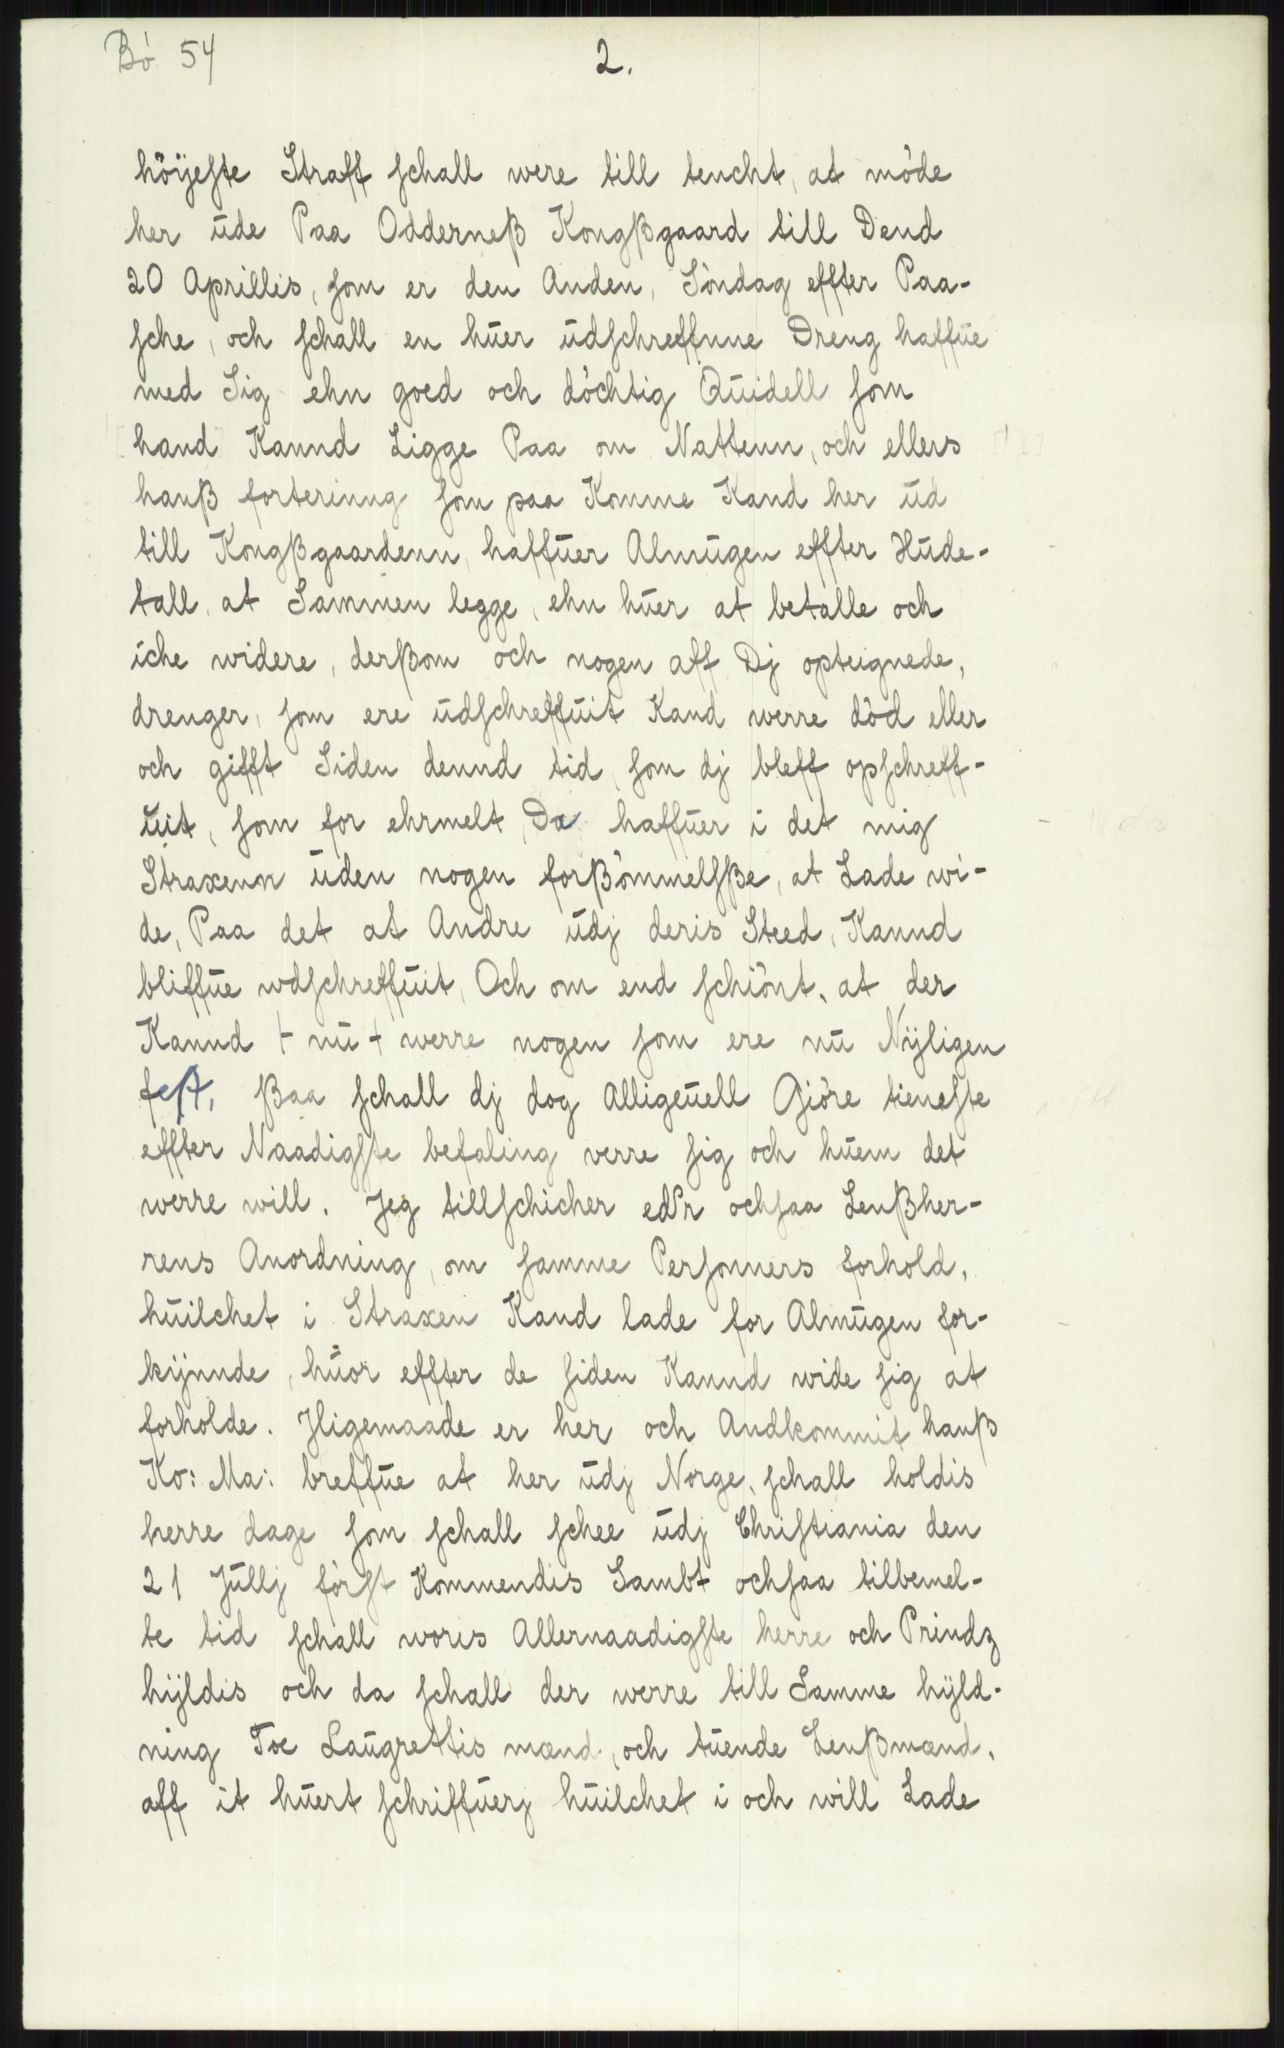 Bó 54
2.
höÿeste Straff schall were till tencht, at möde
her ude Paa Odderneß Kongßgaard till Dend
20 Aprillis, som er den Anden, Söndag effter Paa-
sche, och schall en huer udschreffnne Dreng haffue
med Sig ehn goed och döchtig Quidell som
hand Kannd Ligge Paa om Nattenn, och ellers
hanß forteringg som paa Komme Kand her ud
till Kongßgaardenn, haffuer Almugen effter Hude-
tall, at Sammen legge, ehn huer at betalle och
iche widere, derßom och nogen aff Dj opteignede,
drenger, som ere udschreffuit Kand werre död eller
och gifft Siden dennd tid, som dj bleff opschreff-
uit, som for ehrmelt, Da haffuer i det mig
Straxenn uden nogen forßömmelsße, at Lade wi-
de, Paa det at Andre udj deris Steed, Kannd
bliffue wdschreffuit, Och om end schiönt, at der
Kannd + nu + werre nogen som ere nu Nÿligen
fest, ßaa schall dj dog Alligeuell Giöre tieneste
effter Naadigste befaling verre sig och huem det
werre will. Jeg tillschicher eder ochsaa Lenßher-
rens Anordning, om samme Personners forhold,
huilchet i Straxen Kand lade for Almugen for-
kÿnnde, huor effter de siden Kannd wide sig at
forholde. Iligemaade er her och Andkommit hanß
Ko: Ma: breffue at her udj Norge, schall holdis
herre dage som schall schee udj Christiania den
21 Jullj först Kommendis Sambt ochsaa tilbemel-
te tid schall woris Allernaadigste herre och Prindz
hÿldis och da schall der werre till Samme hÿld-
ning Toe Laugrettis mænd, och tuende Lenßmænd,
aff it huert schriffuerj huilchet i och will Lade